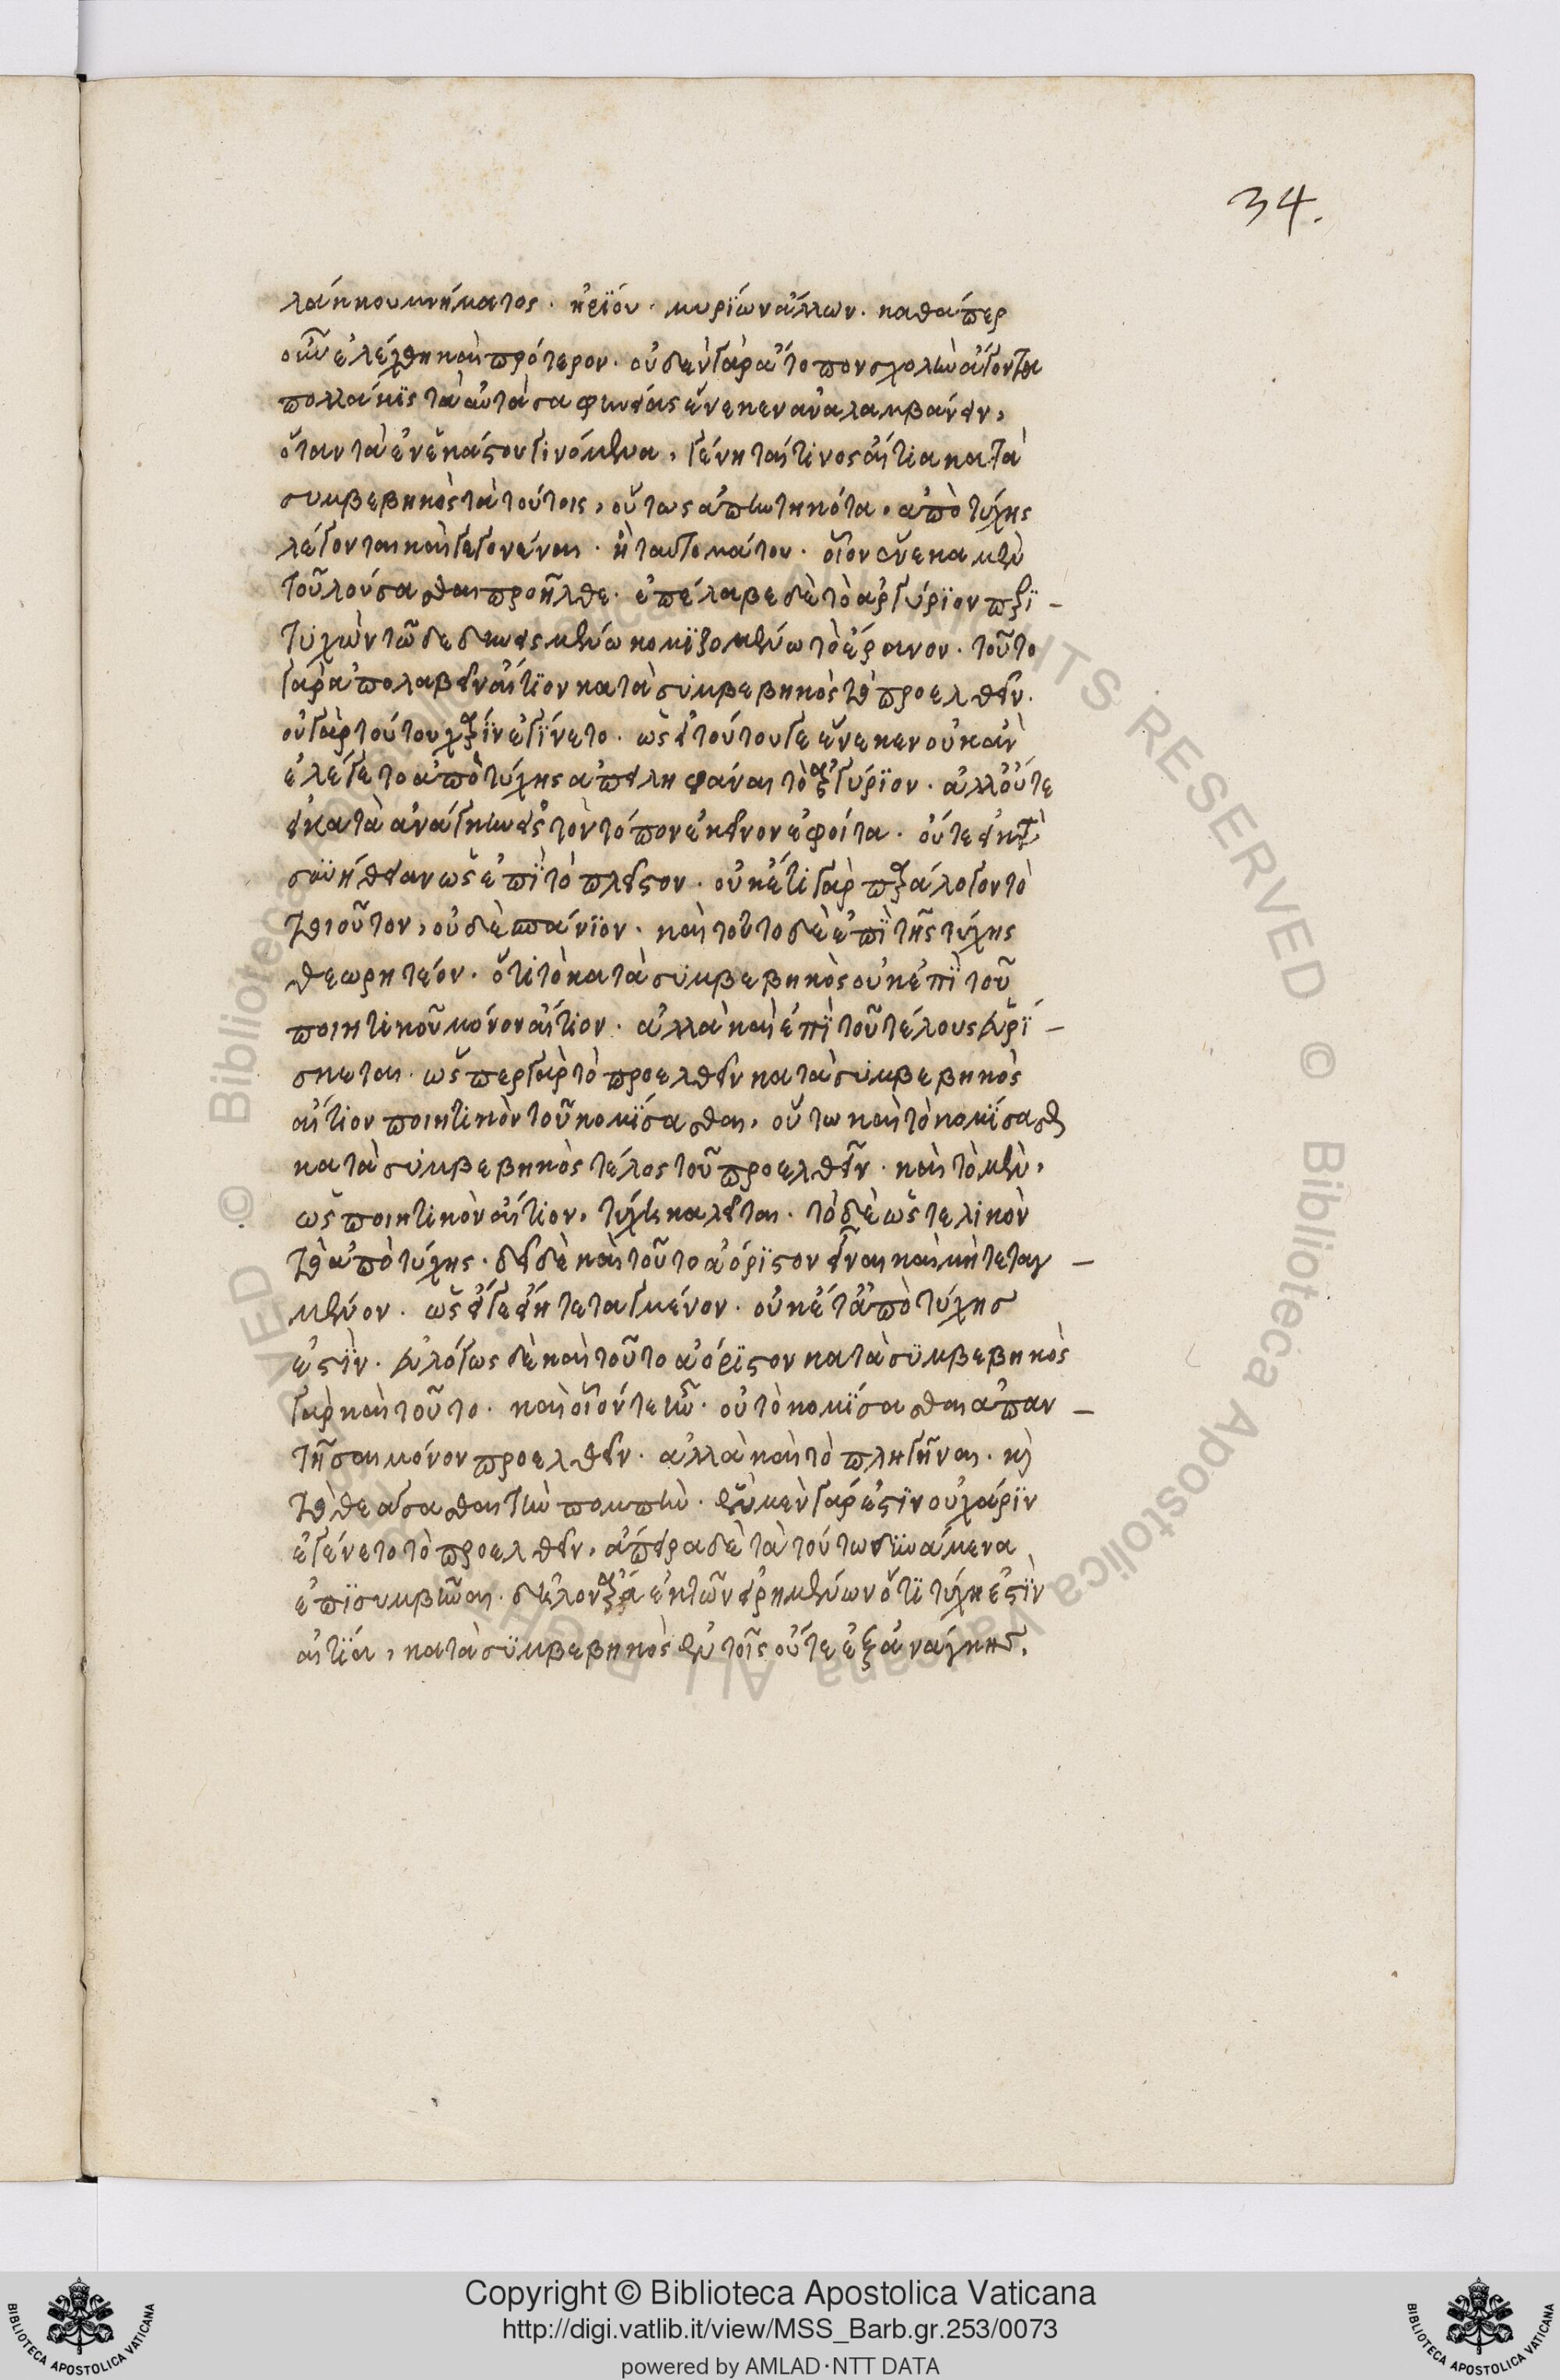 34.
λάκκου μνήματος. ἠρίου. μυρίων ἄλλων. καθάπερ
οὖν ἐλέχθη καὶ πρότερον. οὐδὲν γὰρ ἄτοπον σχολὴν ἄγοντα
πολλάκις τὰ αὐτὰ σαφηνείας ἕνεκεν ἀναλαμβάνειν,
ὅταν τὰ ἕνεκά του γινόμενα, γένηταί τινος αἴτια κατὰ
συμβεβηκὸς τὰ τούτοις, οὕτως ἀπηντηκότα, ἀπὸ τύχης
λέγονται καὶ γεγονέναι. ἢ ταυτομάτου. οἷον ἕνεκα μὲν
τοῦ λούσασθαι προῆλθε. ἐπέλαβε δὲ τὸ ἀργύριον περι-
τυχὼν τῷ δεδανεισμένῳ κομιζομένῳ τὸ ἔρανον. τοῦτο
γὰρ ἀπολαβεῖν αἴτιον κατὰ συμβεβηκὸς τὸ προελθεῖν.
οὐ γὰρ τούτου χάριν ἐγίνετο. ὡς εἰ τούτου γε ἕνεκεν οὐκ ἂν
ἐλέγετο ἀπὸ τύχης ἀπειληφέναι τὸ ἀργύριον. ἀλλ' οὔτε
εἰ κατὰ ἀνάγκην εἰς τὸν τόπον ἐκεῖνον ἐφοίτα. οὔτε εἰ κατὰ
συνήθειαν ὡς ἐπὶ τὸ πλεῖστον. οὐκέτι γὰρ παράλογον τὸ
τοιοῦτον, οὐδὲ σπάνιον. καὶ τοῦτο δὲ ἐπὶ τῆς τύχης
θεωρητέον. ὅτι τὸ κατὰ συμβεβηκὸς οὐκ ἐπὶ τοῦ
ποιητικοῦ μόνον αἴτιον. ἀλλὰ καὶ ἐπὶ τοῦ τέλους εὑρί-
σκεται. ὥσπερ γὰρ τὸ προελθεῖν κατὰ συμβεβηκὸς
αἴτιον ποιητικὸν τοῦ κομίσασθαι, οὕτω καὶ τὸ κομίσασθαι
κατὰ συμβεβηκὸς τέλος τοῦ προελθεῖν. καὶ τὸ μὲν,
ὡς ποιητικὸν αἴτιον, τύχη καλεῖται. τὸ δὲ ὡς τελικὸν
τὸ ἀπὸ τύχης. δεῖ δὲ καὶ τοῦτο ἀόριστον εἶναι καὶ μὴ τεταγ-
μένον. ὡς εἴγε εἴη τεταγμένον. οὐκέτ' ἀπὸ τύχης
ἐστὶν. εὐλόγως δὲ καὶ τοῦτο ἀόριστον κατὰ συμβεβηκὸς
γὰρ καὶ τοῦτο. καὶ οἷόν τε ἦν. οὐ τὸ κομίσασθαι ἀπαν-
τῆσαι μόνον προελθεῖν. ἀλλὰ καὶ τὸ πληγῆναι. καὶ
τὸ θεάσασθαι τὴν πομπὴν. ἓν μὲν γάρ ἐστιν οὗ χάριν
ἐγένετο τὸ προελθεῖν, ἄπειρα δὲ τὰ τούτῳ δυνάμενα
ἐπισυμβῆναι. δῆλον ἄρα ἐκ τῶν εἰρημένων ὅτι τύχη ἐστὶν
αἰτία, κατὰ συμβεβηκὸς ἐν τοῖς οὔτε ἐξ ἀνάγκης.
Copyright © Biblioteca Apostolica Vaticana
http://digi.vatlib.it/view/MSS_Barb.gr.253/0073
powered by AMLAD·NTT DATA